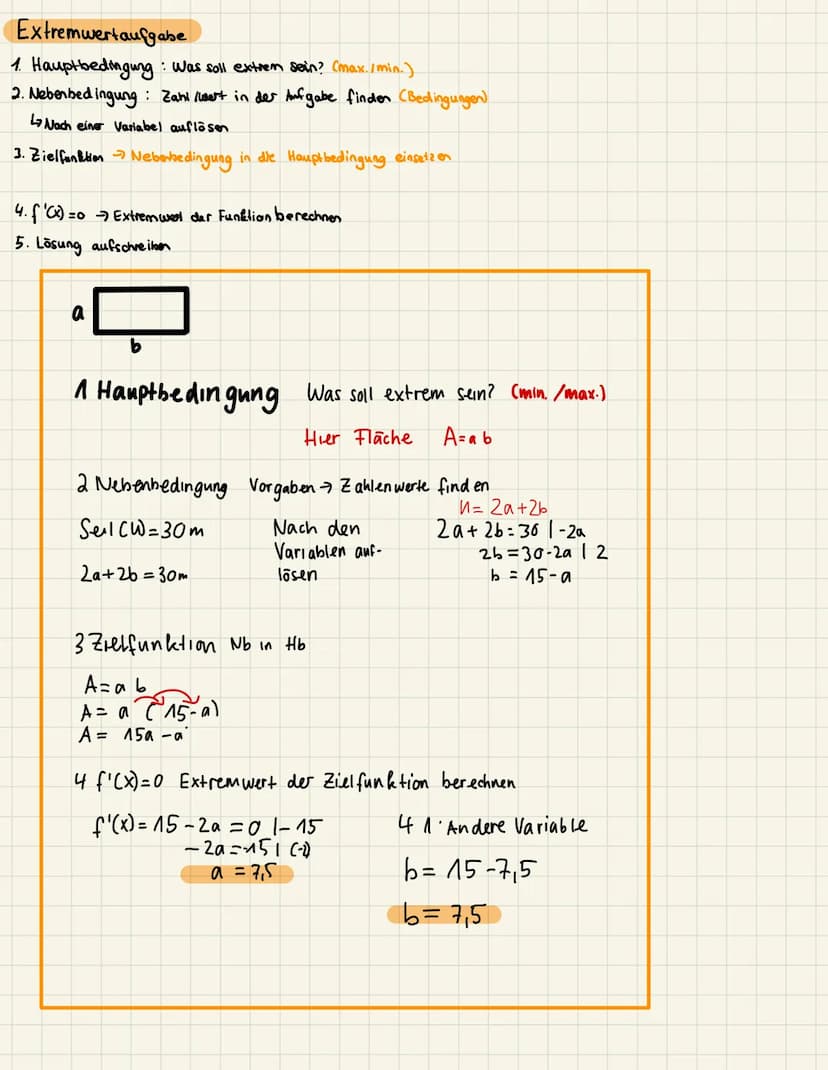 Extremwertaufgabe
1. Hauptbedingung : Was soll extrem sein? (max./min.)
2. Nebenbedingung : Zahl/wert in der Aufgabe finden (Bedingungen)
↳ Nach einer Variabel auflösen
3. Zielfunktion → Nebenbedingung in die Hauptbedingung einsetzen
4. f'(x)=0 → Extremwert der Funktion berechnen
5. Lösung aufschreiben
a
b
1 Hauptbedingung Was soll extrem sein? (min. /max.)
Hier Fläche A=a b
2 Nebenbedingung Vorgaben → Zahlenwerte finden
U= 2a+2b
Seil (U)=30m Nach den 2a+2b=30 |-2a
Variablen auf- 2b=30-2a | 2
2a+2b=30m lösen b = 15-a
3 Zielfunktion Nb in Hb
A=a b
A= a (15-a)
A= 15a -a
4 f'(x)=0 Extremwert der Zielfunktion berechnen
f'(x)= 15-2a =0 |-15 4 1 Andere Variable
-2a=-15 | (-2)
a = 7,5 b= 15-7,5
b= 7,5